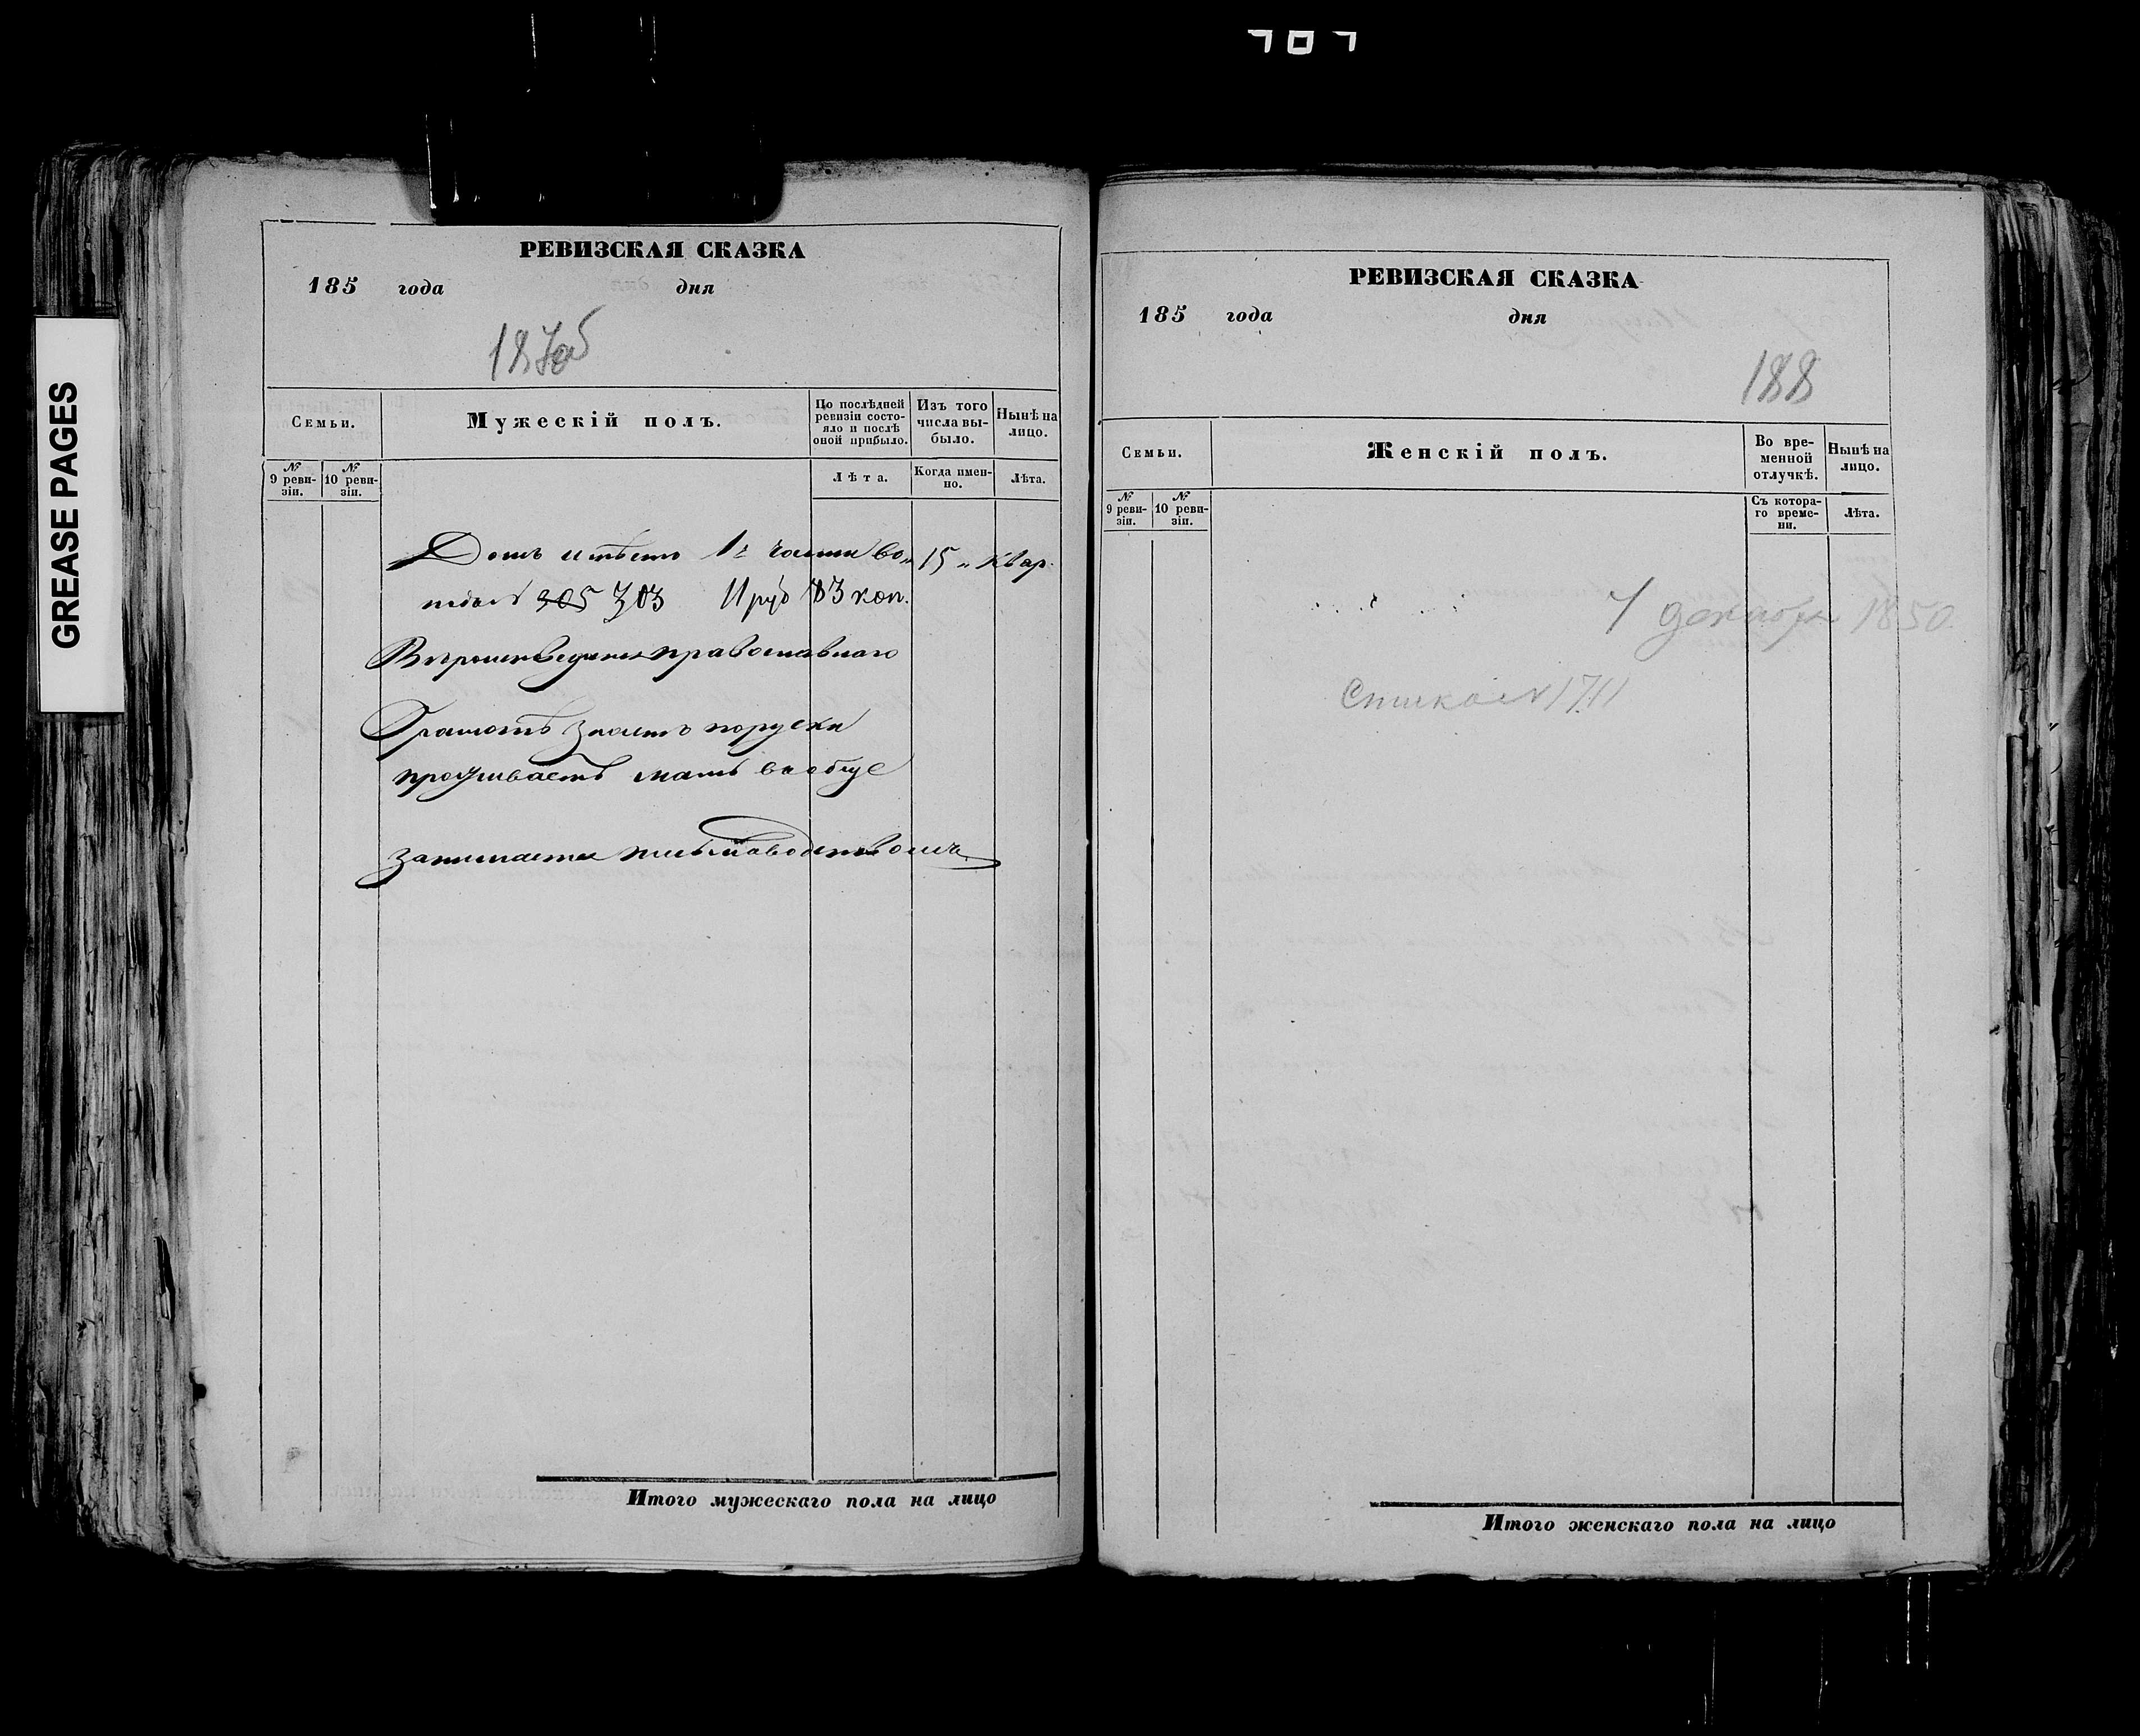 707
GREASE PAGES
РЕВИЗСКАЯ СКАЗКА
185 года дня
187об
Семьи.
Мужескій полъ.
По послѣдней ревизіи состояло и послѣ оной прибыло.
Изъ того числа выбыло.
Нынѣ на лицо.
№ 9 ревизіи.
№ 10 ревизіи.
Лѣта.
Когда именно.
Лѣта.
Домъ имѣетъ 1й части во 15 квар
талѣ 305 303 11 руб 83 коп.
Вѣроисведанія православнаго
Грамотѣ знаетъ поруски
проживаетъ мать вообще
занимается письмаводствомъ
РЕВИЗСКАЯ СКАЗКА
185 года дня
188
Семьи.
Женскій полъ.
Во временной отлучкѣ.
Нынѣ на лицо.
№ 9 ревизіи.
№ 10 ревизіи.
Съ котораго времени.
Лѣта.
7 декабря 1850
Списка № 1711
Итого мужескаго пола на лицо
Итого женскаго пола на лицо